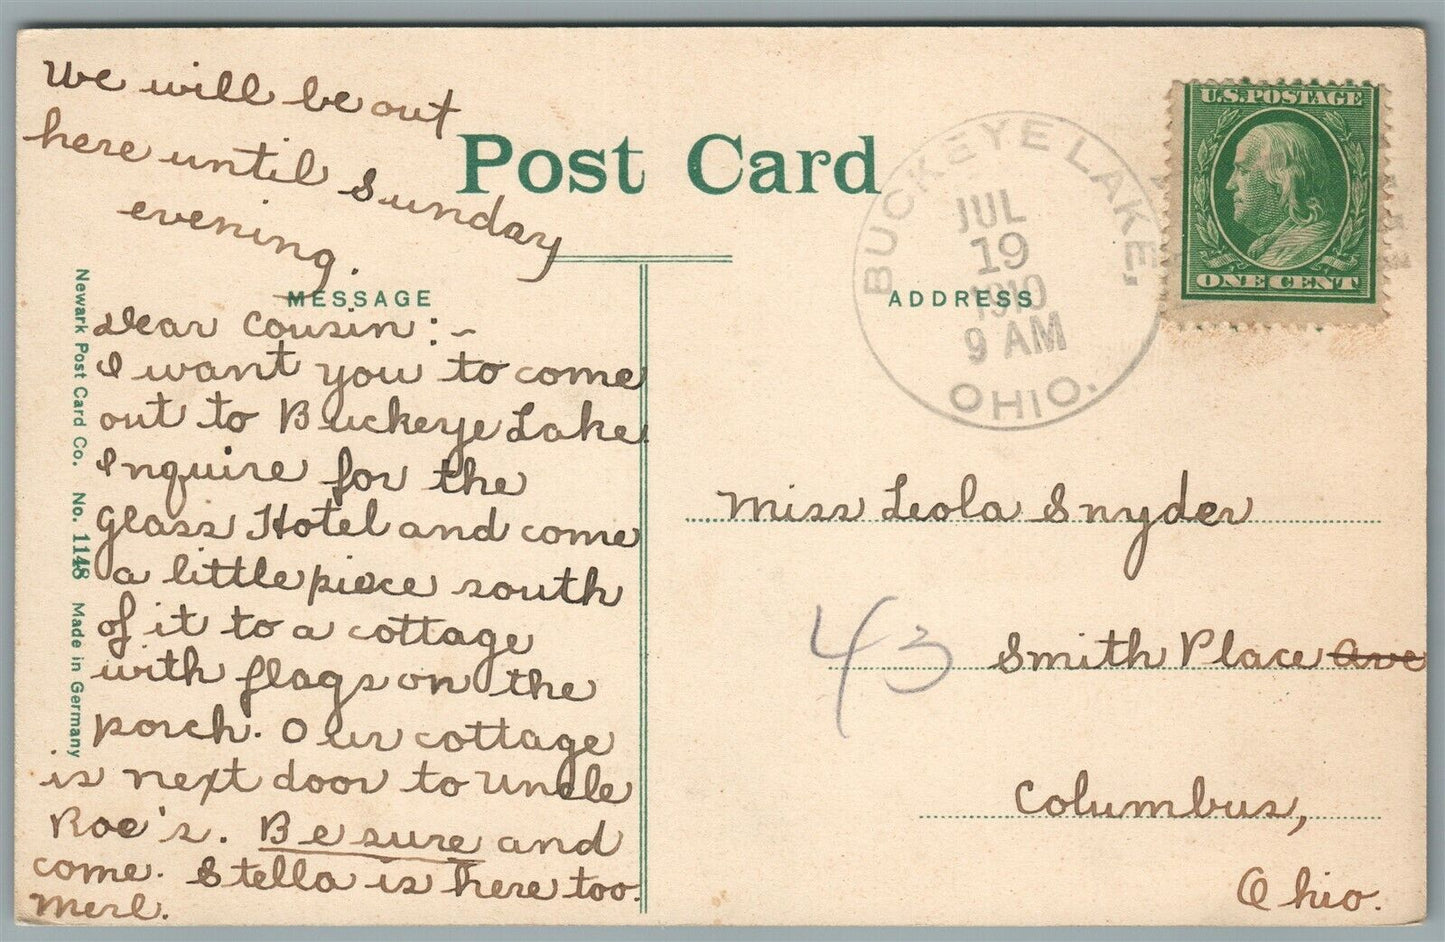 We will be out
here until Sunday
evening.
Post Card
MESSAGE
Dear Cousin:-
I want you to come
out to Buckeye Lake.
Inquire for the
Glass Hotel and come
a little piece south
of it to a cottage
with flags on the
porch. Our cottage
is next door to Uncle
Roe's. Be sure and
come. Stella is here too.
Merl.
Newark Post Card Co. No. 1148 Made in Germany
BUCKEYE LAKE,
JUL
19
1910
9 AM
OHIO.
U.S. POSTAGE
ONE CENT
ADDRESS
Miss Leola Snyder
43 Smith Place Ave
Columbus,
Ohio.